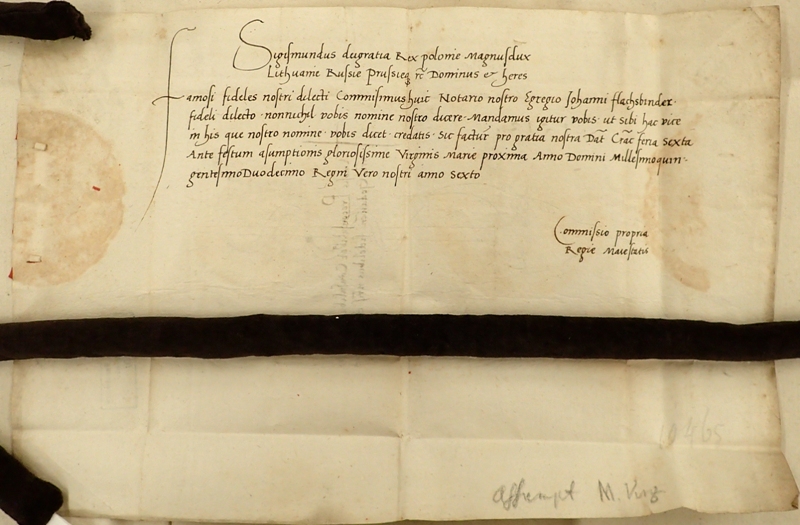 Sigismundus deigratia Rex polonie Magnusdux
Lithuanie Russie Prussieq rc Dominus et heres
Famosi fideles nostri dilecti Commisimus huic Notario nostro Egregio Johanni flachsbinder
fideli dilecto nonnichil vobis nomine nostro dicere Mandamus igitur vobis ut sibi hac vice
in his que nostro nomine vobis dicet credatis Sic facturi pro gratia nostra Dat Crac feria sexta
Ante festum asumptionis gloriosissime Virginis Marie proxima Anno Domini Millesimoquin
gentesimoDuodecimo Regni Vero nostri anno sexto
Commissio propria
Regie Maiestatis